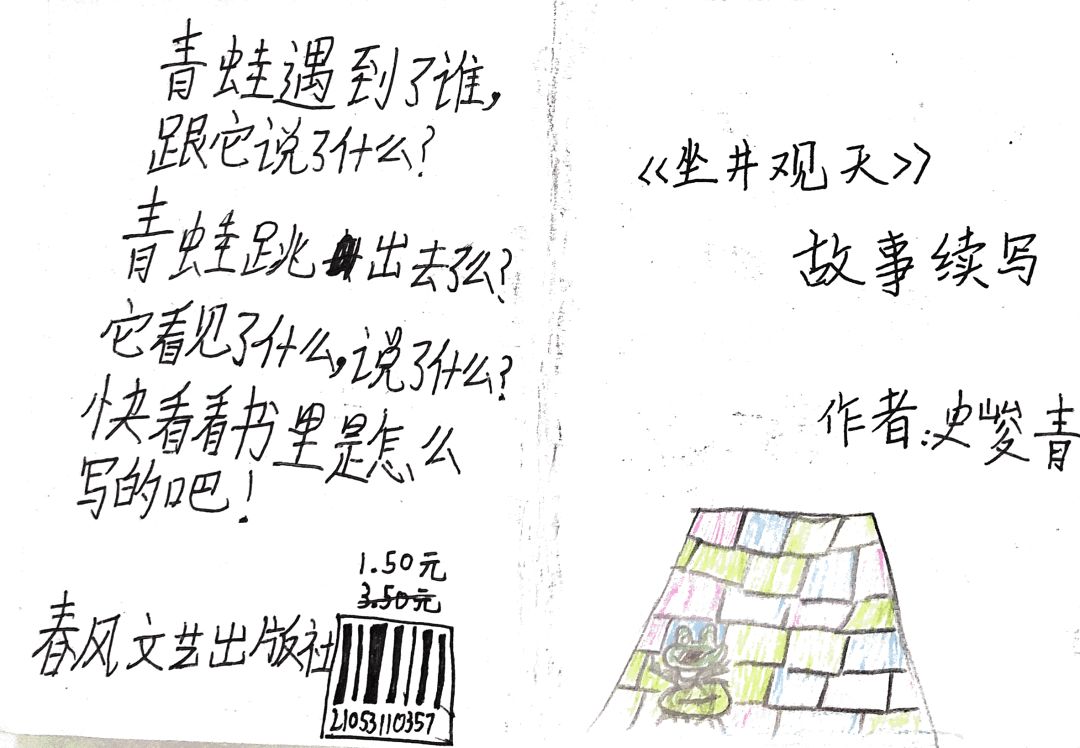 青蛙遇到了谁，
跟它说了什么？
青蛙跳出去了么？
它看见了什么，说了什么？
快看看书里是怎么
写的吧！
1.50元
3.50元
春风文艺出版社
21053110357
《坐井观天》
故事续写
作者：史峻青